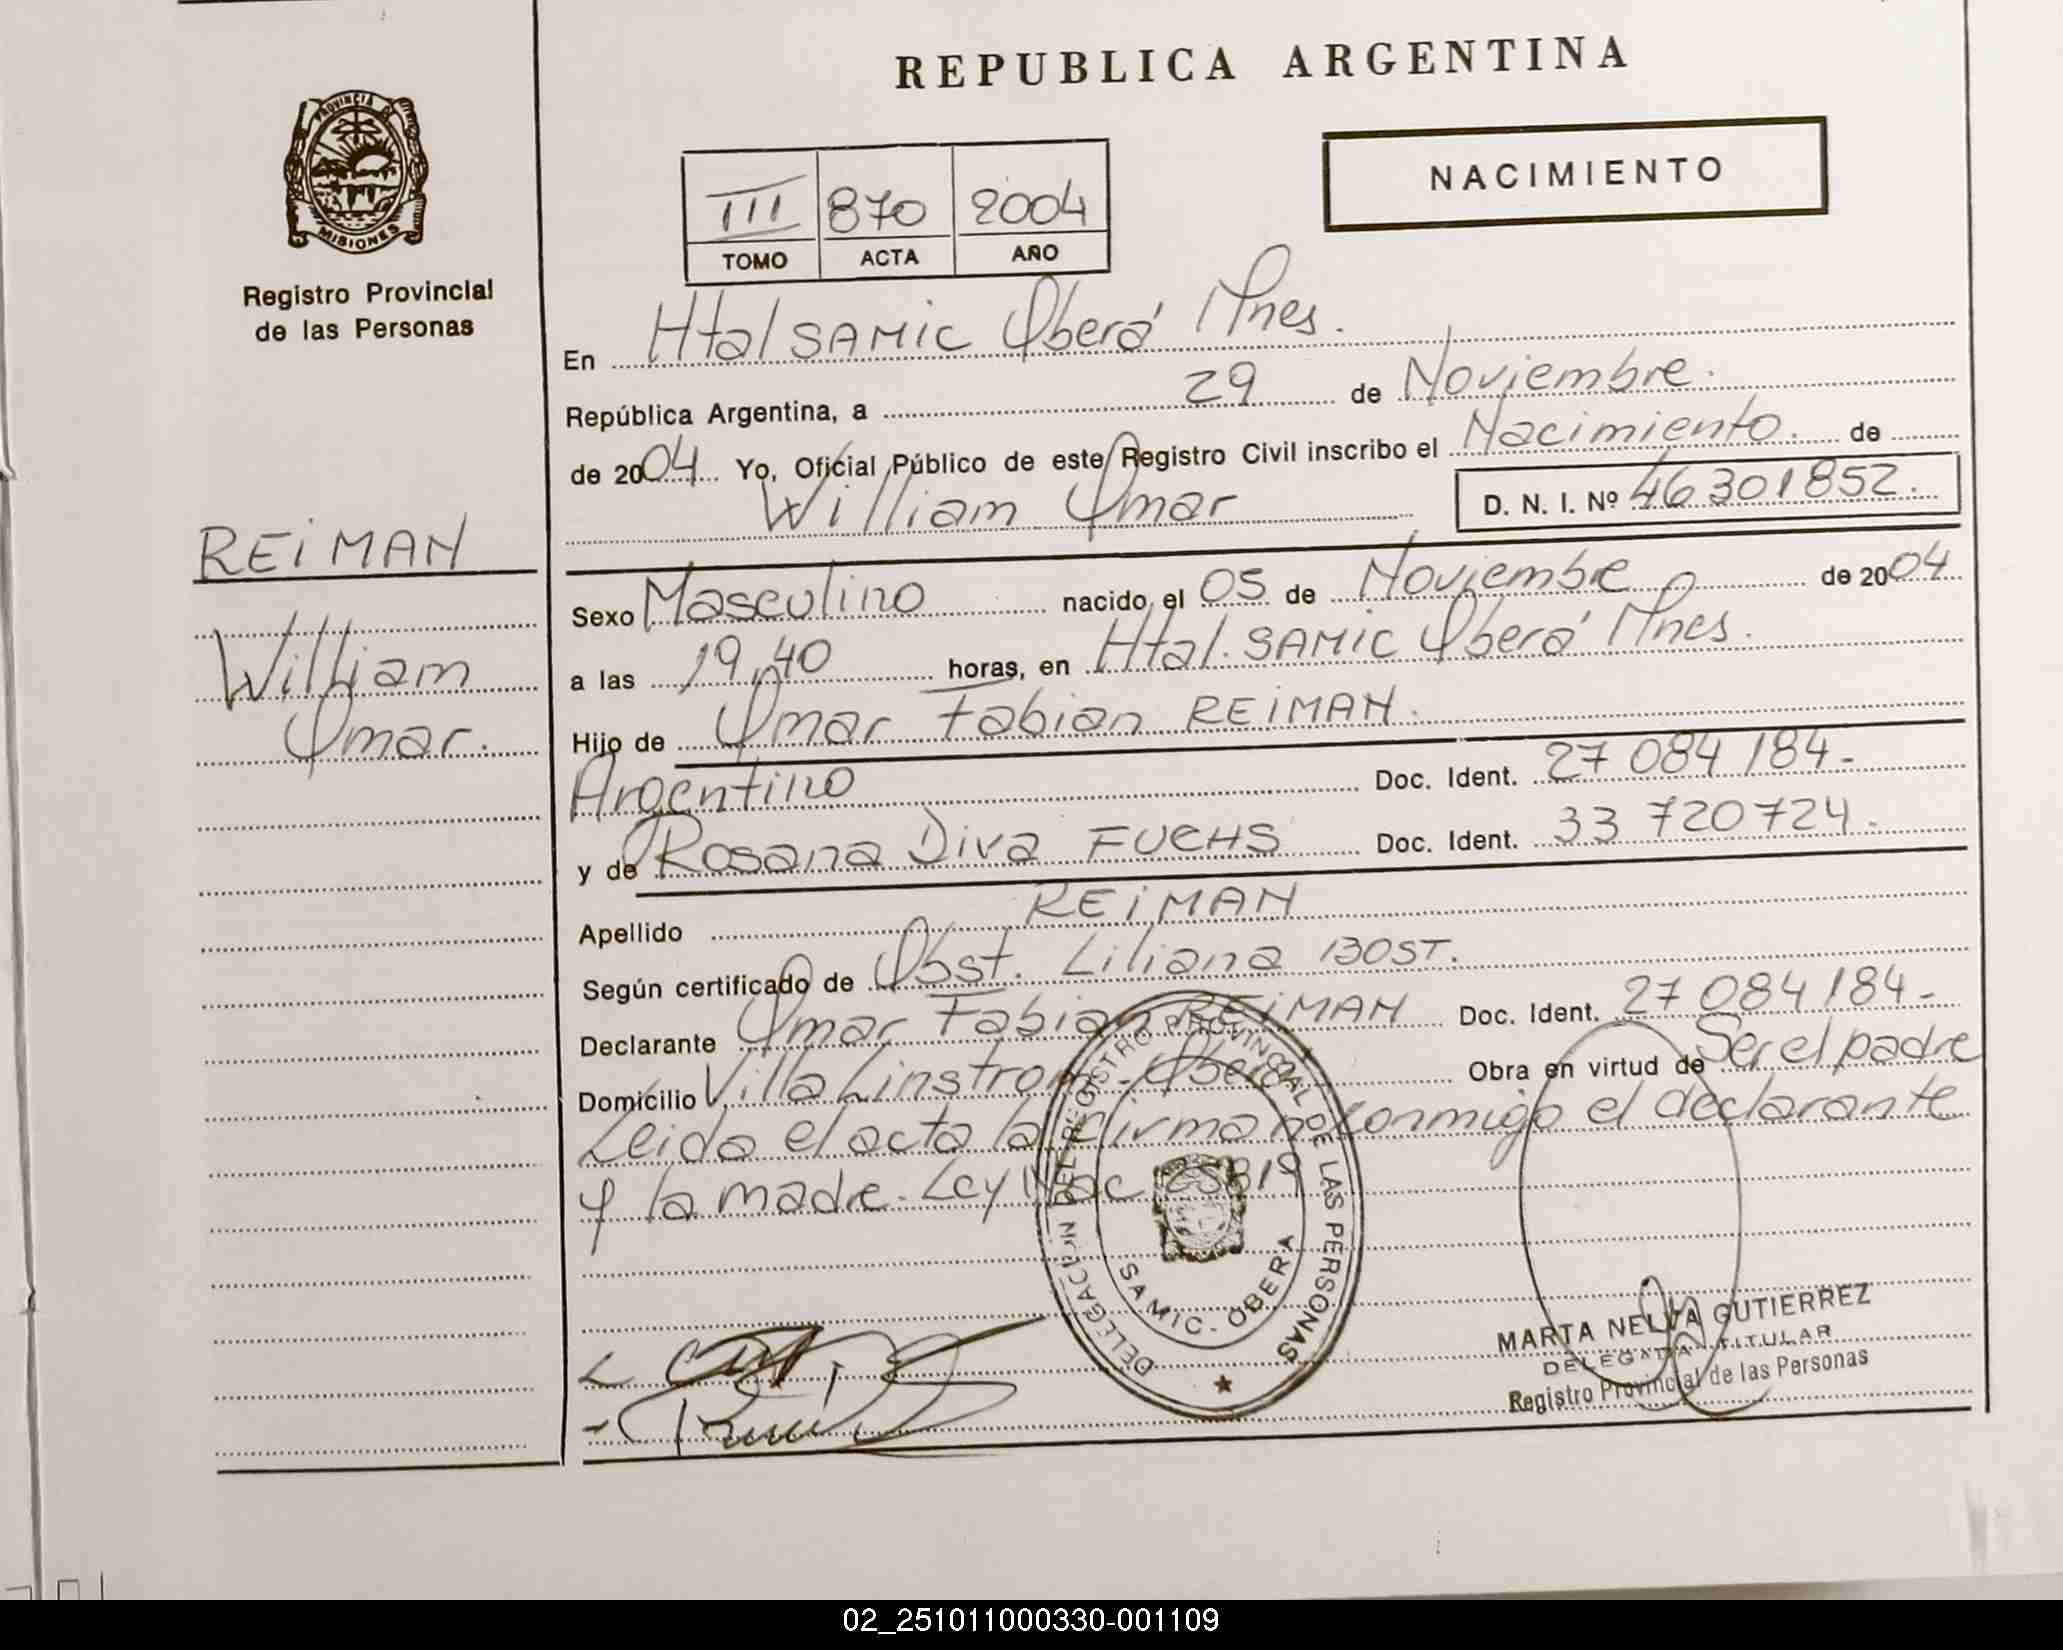 REPUBLICA ARGENTINA
PROVINCIA
MISIONES
Registro Provincial
de las Personas
NACIMIENTO
III 870 2004
TOMO ACTA AÑO
En Htal SAMIC Oberá Mnes.
República Argentina, a 29 de Noviembre.
de 2004 Yo, Oficial Público de este Registro Civil inscribo el Nacimiento. de
William Omar D. N. I. Nº 46301852.
REIMAN
William
Omar.
Sexo Masculino nacido el 05 de Noviembre de 2004
a las 19,40 horas, en Htal. SAMIC Oberá Mnes.
Hijo de Omar Fabian REIMAN.
Argentino Doc. Ident. 27 084 184-
y de Rosana Diva FUCHS Doc. Ident. 33 720724.
Apellido REIMAN
Según certificado de Obst. Liliana BOST.
Declarante Omar Fabian REIMAN Doc. Ident. 27 084 184-
Domicilio Villa Linstrom - Oberá Obra en virtud de Ser el padre
Leida el acta la firman conmigo el declarante
y la madre. Ley Nac 25819
DELEGACION DEL REGISTRO PROVINCIAL DE LAS PERSONAS
SAMIC - OBERA
MARTA NELVA GUTIERREZ
DELEGADA TITULAR
Registro Provincial de las Personas
02_251011000330-001109